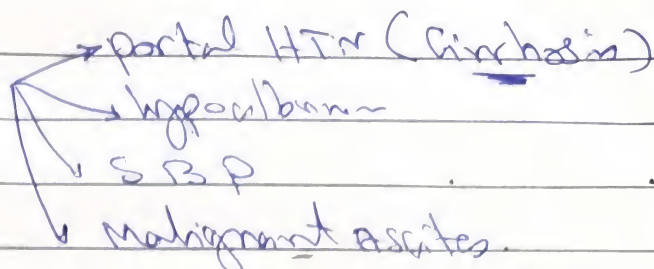 portal HTN (Cirrhosis)
hypoalbumin
SBP
Malignant ascites.